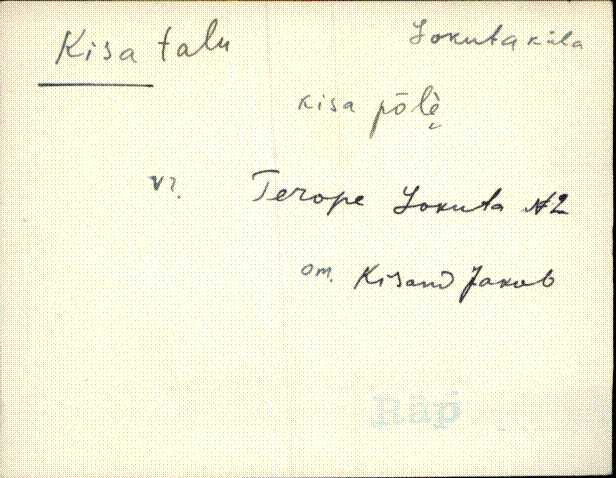 Kisa talu Jokuta küla
kisa põlè
vr. Terope Jokuta N2
om. Kisand Jakob
Räp